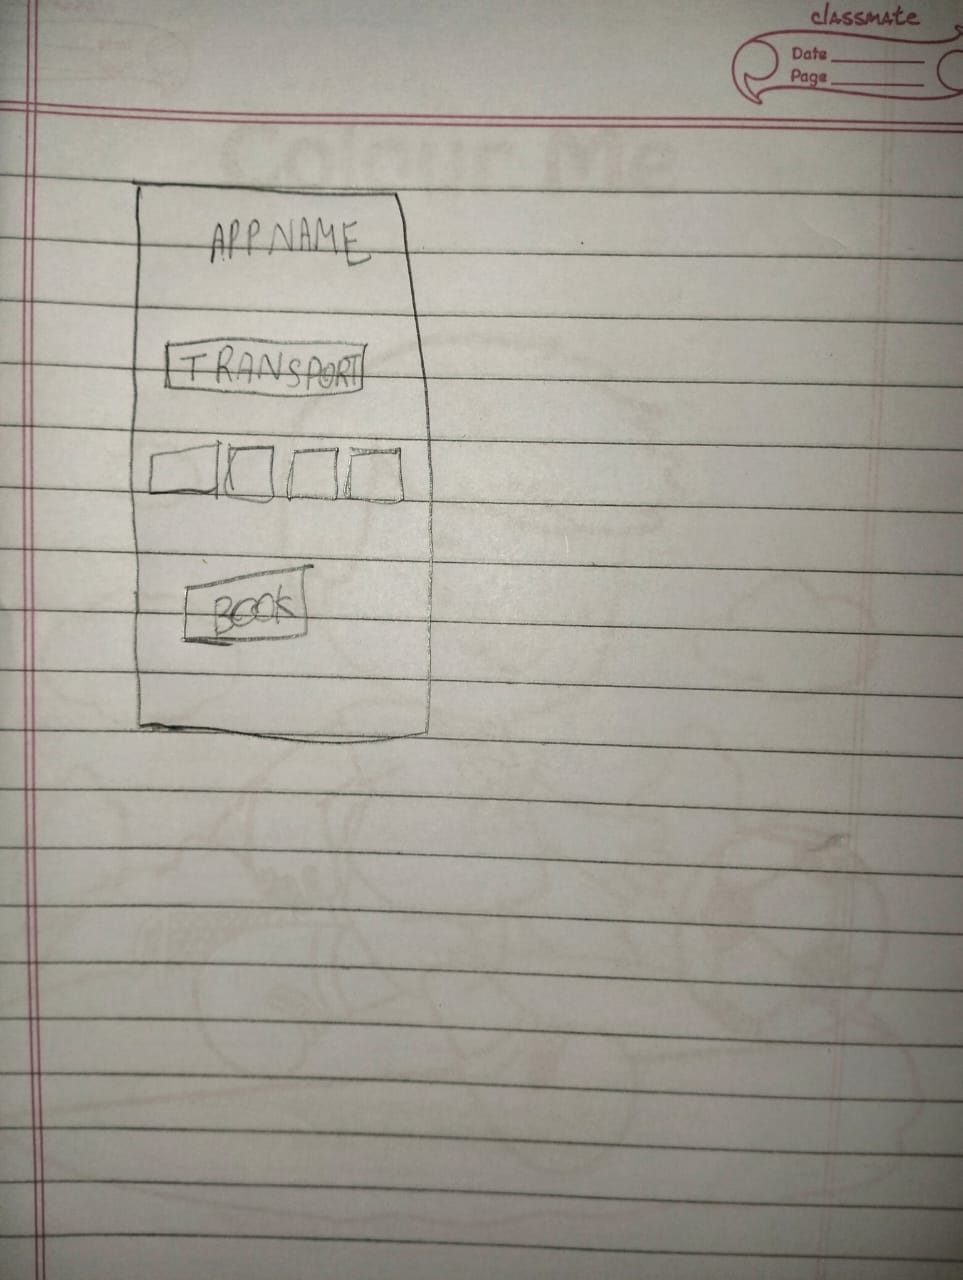 classmate
Date
Page
Colour Me
APPNAME
TRANSPORT
BOOK